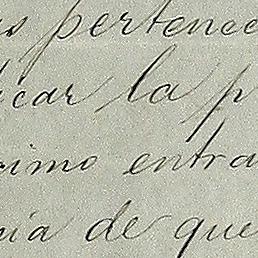 pertenece
car la p
imo entra
ia de que